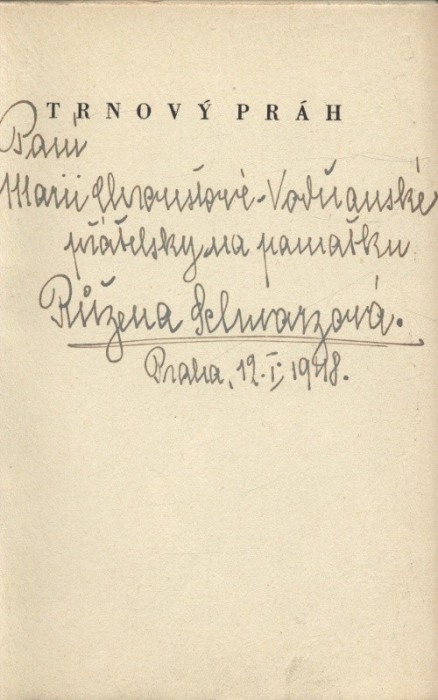 TRNOVÝ PRÁH
Paní
Marii Chroustové-Vodňanské
přátelsky na památku
Růžena Schwarzová.
Praha, 12.I.1948.